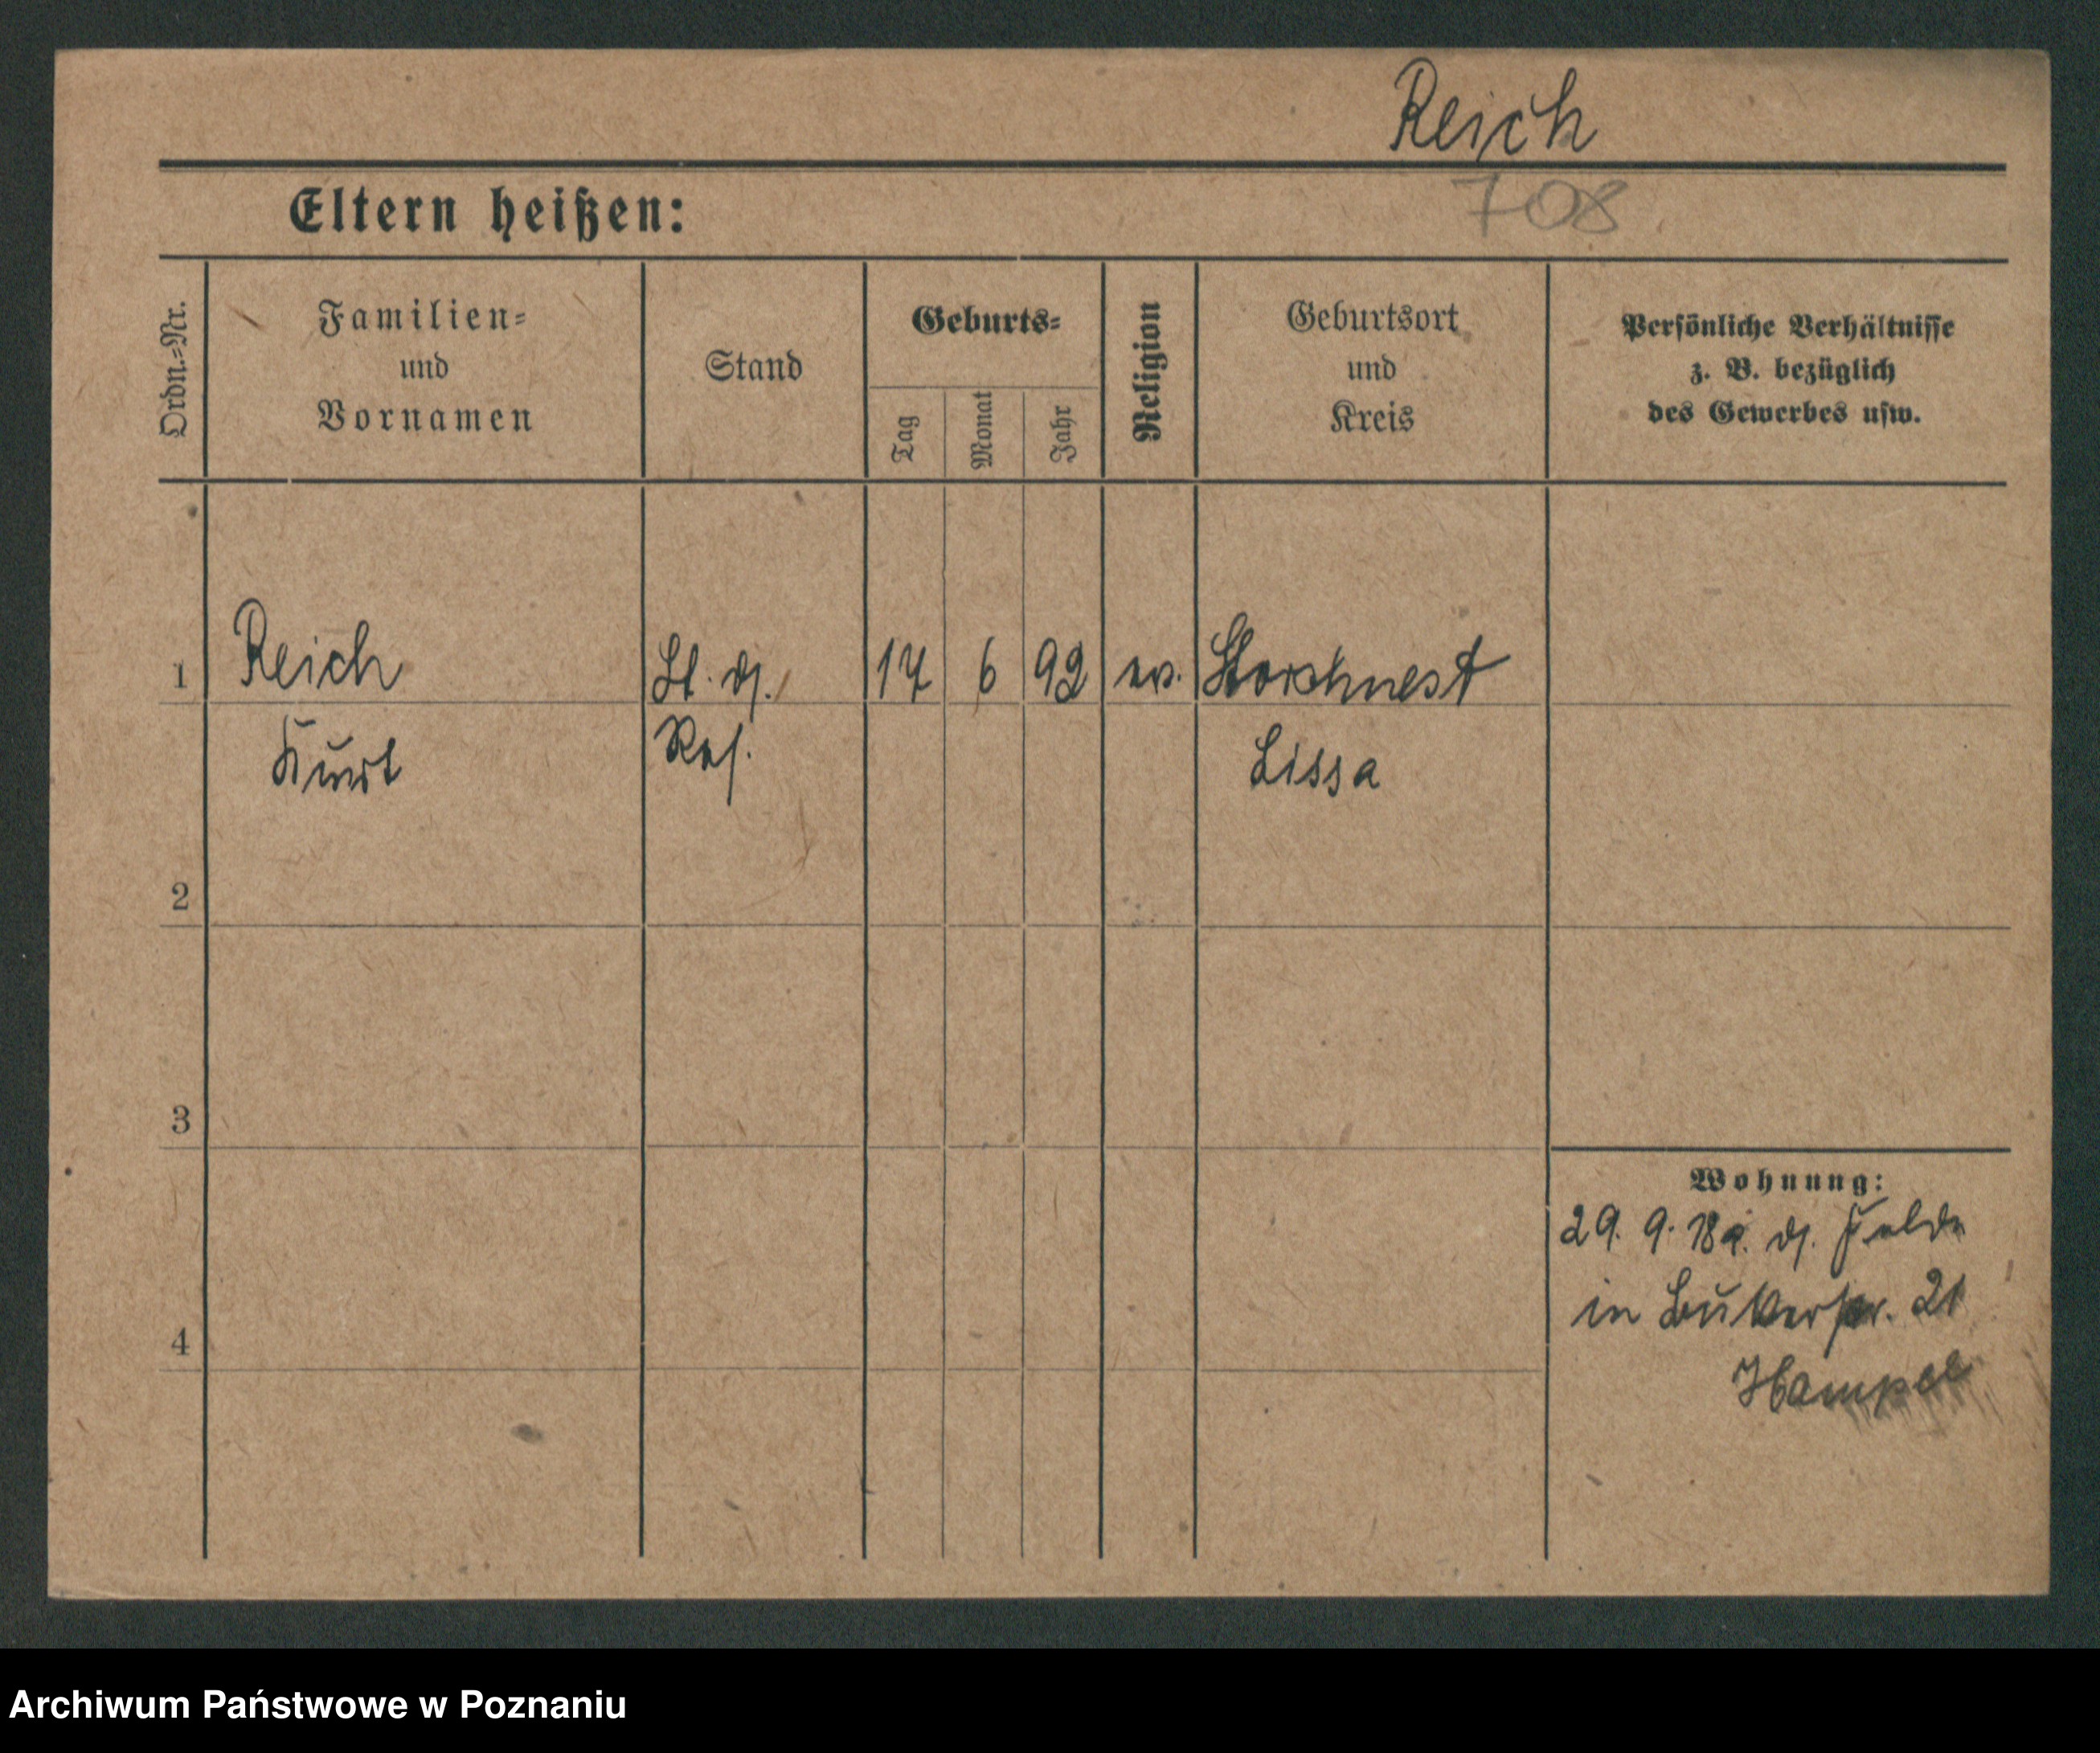 Reich
708
Eltern heißen:
Ordn.-Nr.
Familien-
und
Vornamen
Stand
Geburts-
Tag
Monat
Jahr
Religion
Geburtsort
und
Kreis
Persönliche Verhältnisse
z. B. bezüglich
des Gewerbes usw.
1
Reich
Lt. d.
17
6
92
ev.
Storchnest
Kurt
Res.
Lissa
2
3
Wohnung:
29. 9. 18 a. d. Felde
in Bukerstr. 21
4
Hampel
Archiwum Państwowe w Poznaniu